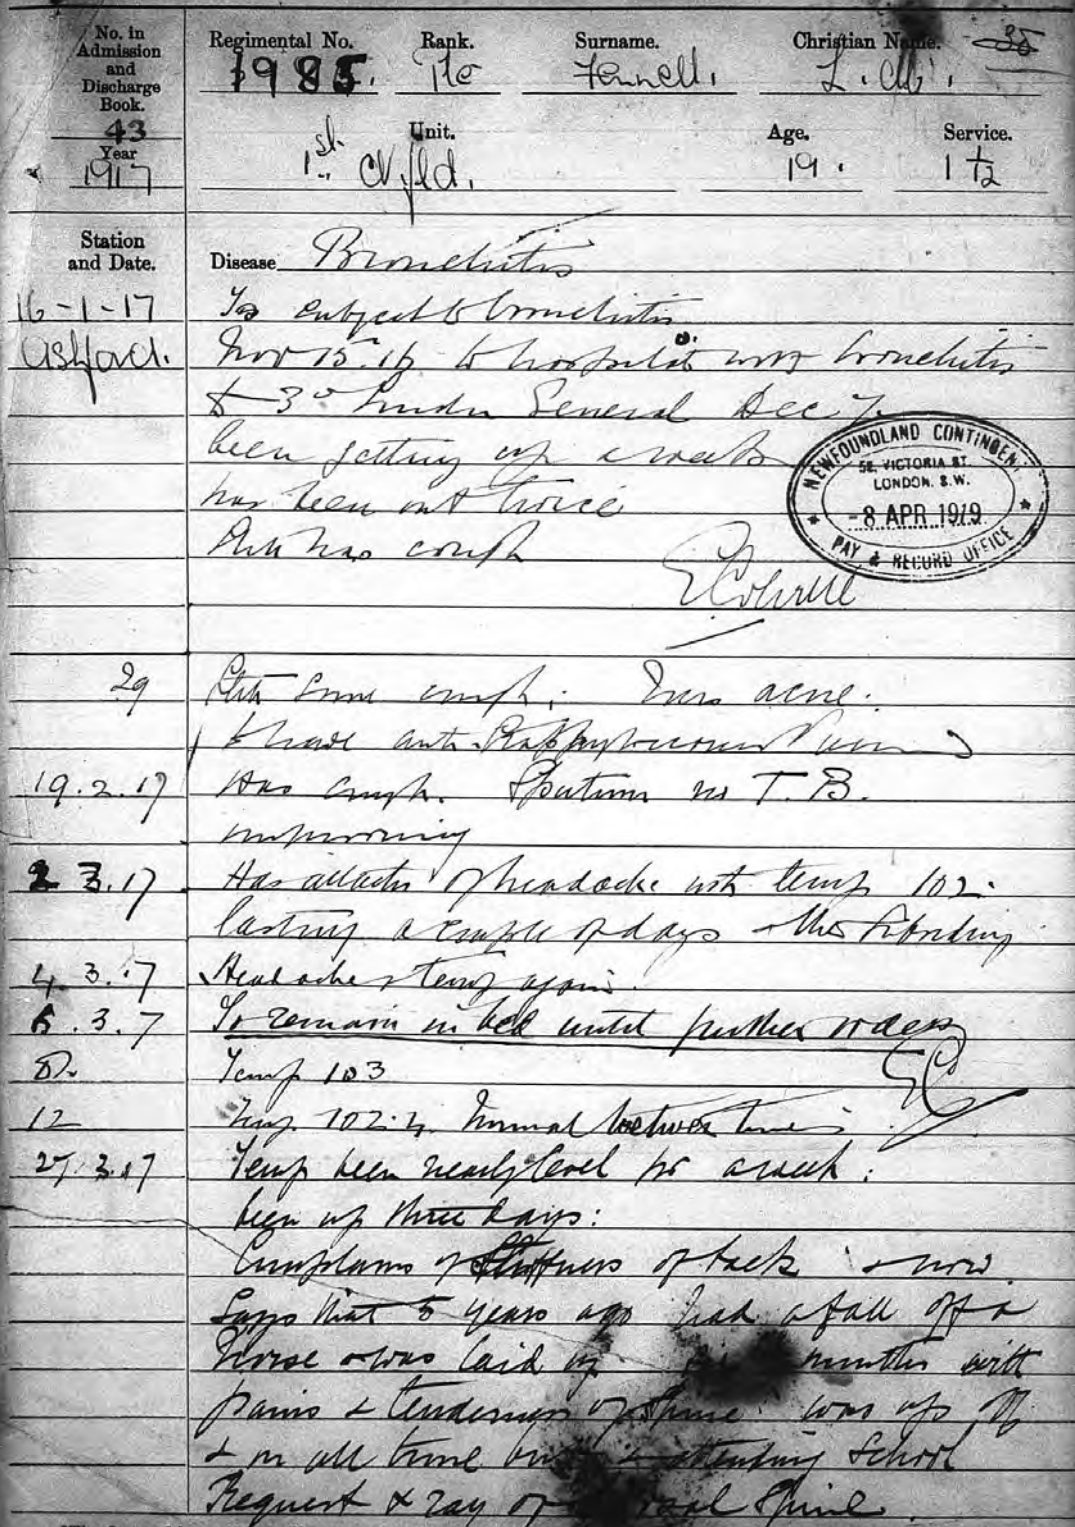 No. in Admission and Discharge Book.
43
Year
1917
Regimental No. Rank. Surname. Christian Name. 35
1985. Pte Fennell. L.
Unit. Age. Service.
1st Nfld. 19. 1 1/12
Station and Date.
Disease Bronchitis
16-1-17 Is subject to bronchitis
Ashford. Nov 15.16 to hospital with bronchitis
to 3rd London General Dec 7
been getting up a week
has been out twice
Still has cough
NEWFOUNDLAND CONTINGENT
58, VICTORIA ST.
LONDON. S.W.
-8 APR 1919
PAY & RECORD OFFICE
29 Still some cough; has acne.
to have anti-
19.2.17 Has cough. Sputum no T.B.
improving
2 3.17 Has attacks of headache with temp 102.
lasting a couple of days & then subsiding
4.3.17 Headache & temp again.
5.3.7 To remain in bed until further orders
EC
8. Temp 103
12 Temp. 102.4. Normal between times
27.3.17 Temp been nearly level for a week:
been up three days:
Complains of stiffness of back & now
Says that 5 years ago had a fall off a
horse & was laid up months with
pains & tenderness of spine. was up off
& on all time but attending School
Request X ray of spine.